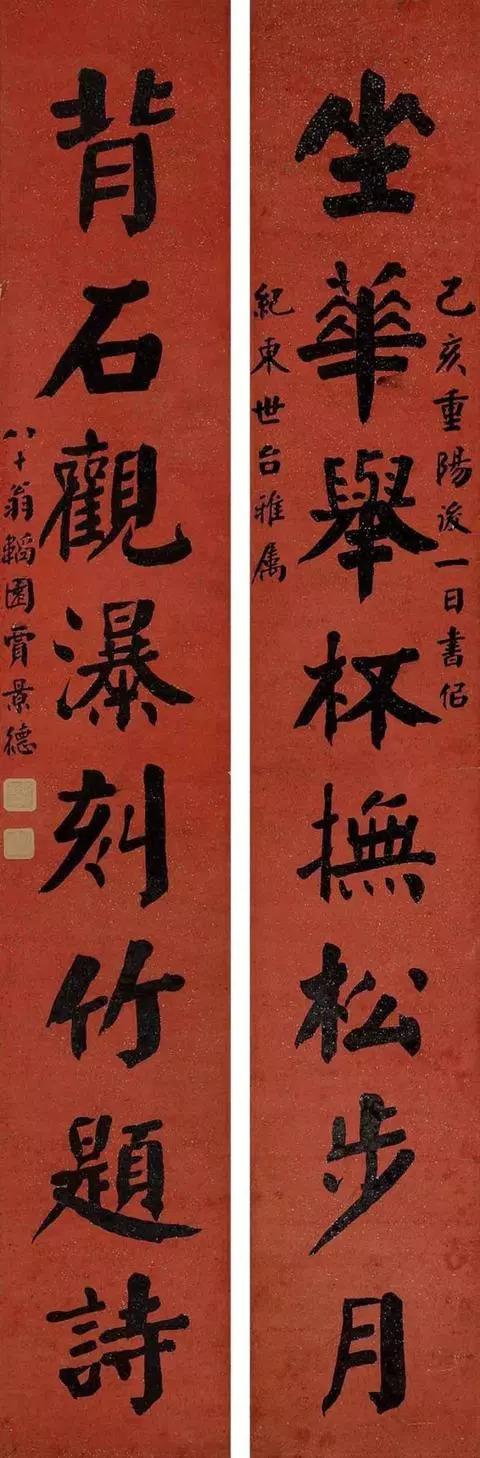 己亥重陽後一日書侶
坐華舉杯撫松步月
紀東世台雅屬
背石觀瀑刻竹題詩
八十翁韜園賈景德